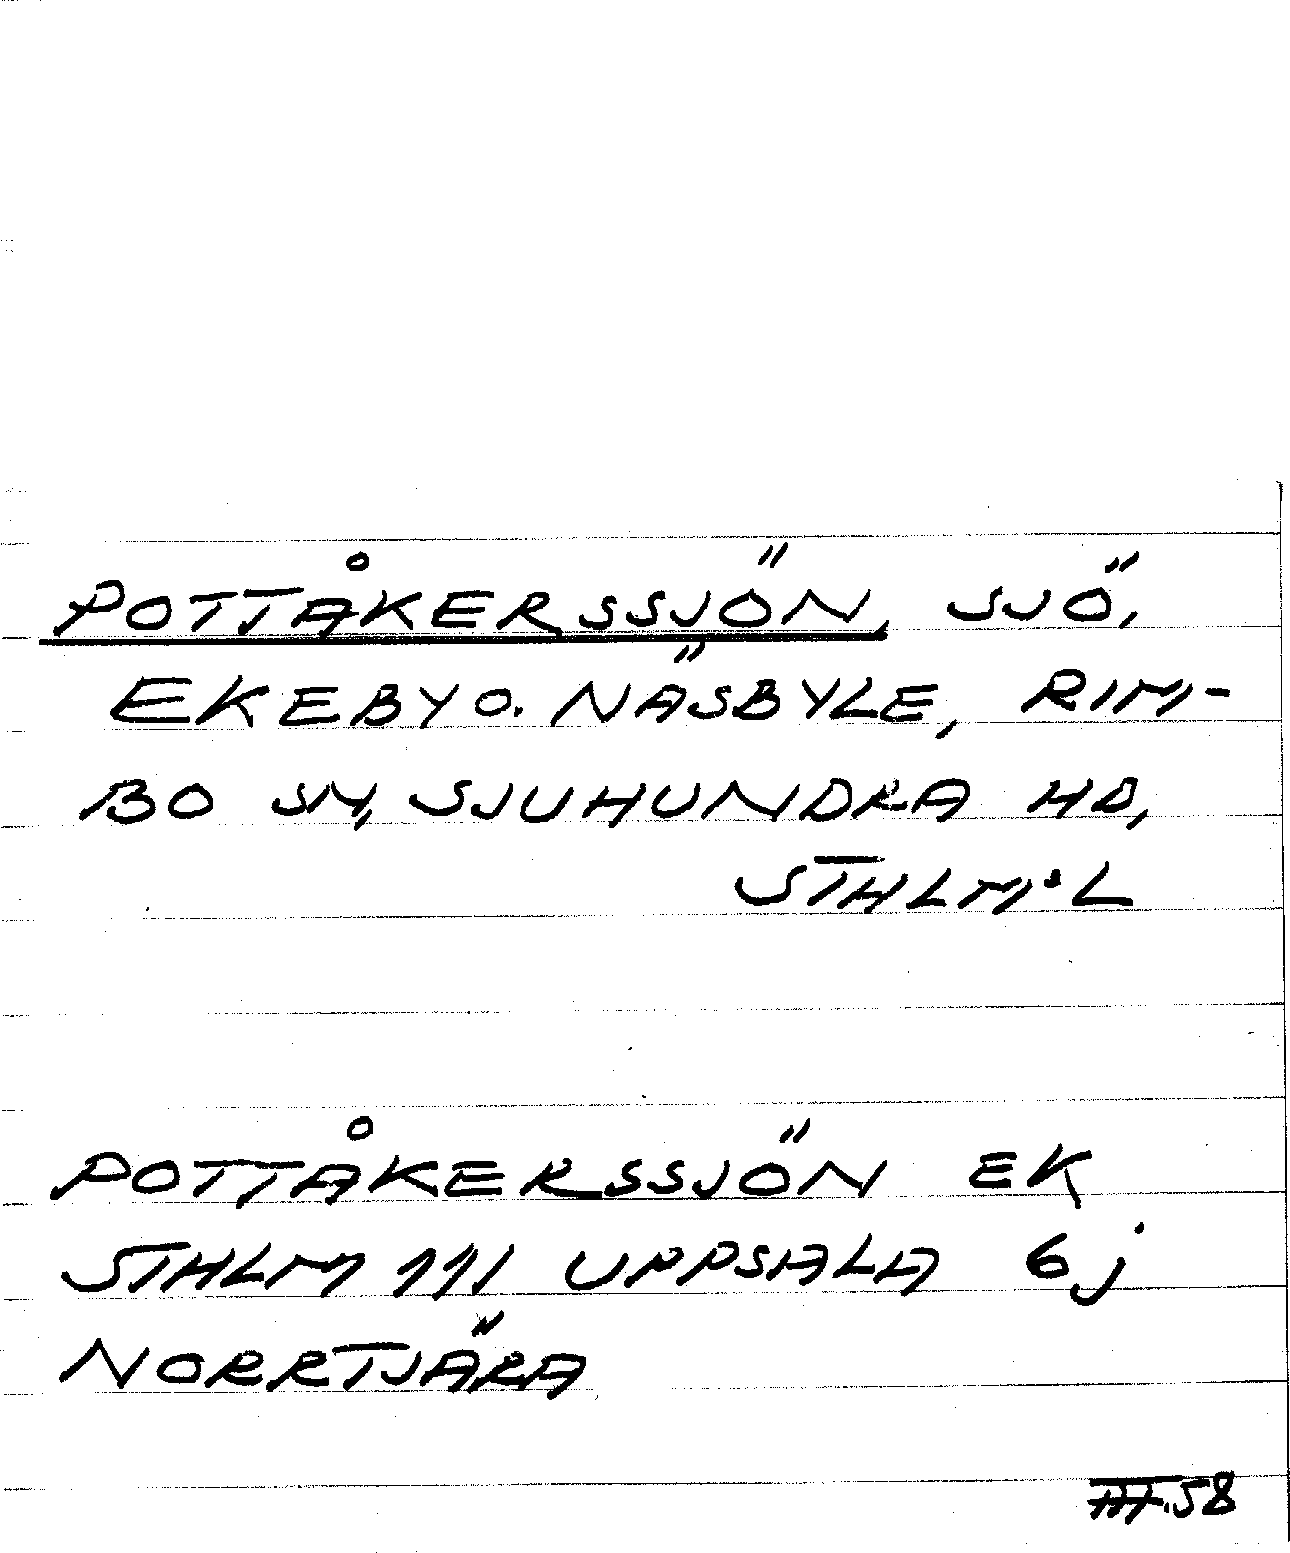 POTTÅKERSSJÖN, SJÖ,
EKEBY O. NÄSBYLE, RIM-
BO SN, SJUHUNDRA HD,
STHLM.L
POTTÅKERSSJÖN EK
STHLM 111 UPPSALA 6j
NORRTJÄRA
58